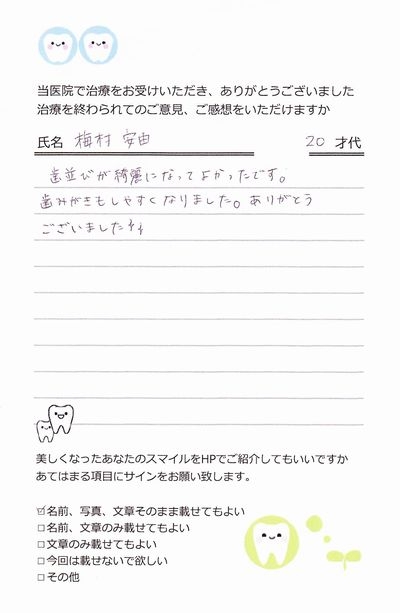 当医院で治療をお受けいただき、ありがとうございました
治療を終わられてのご意見、ご感想をいただけますか
氏名 梅村 安由 20 才代
歯並びが綺麗になってよかったです。
歯みがきもしやすくなりました。ありがとう
ございました
美しくなったあなたのスマイルをHPでご紹介してもいいですか
あてはまる項目にサインをお願い致します。
☑名前、写真、文章そのまま載せてもよい
□名前、文章のみ載せてもよい
□文章のみ載せてもよい
□今回は載せないで欲しい
□その他